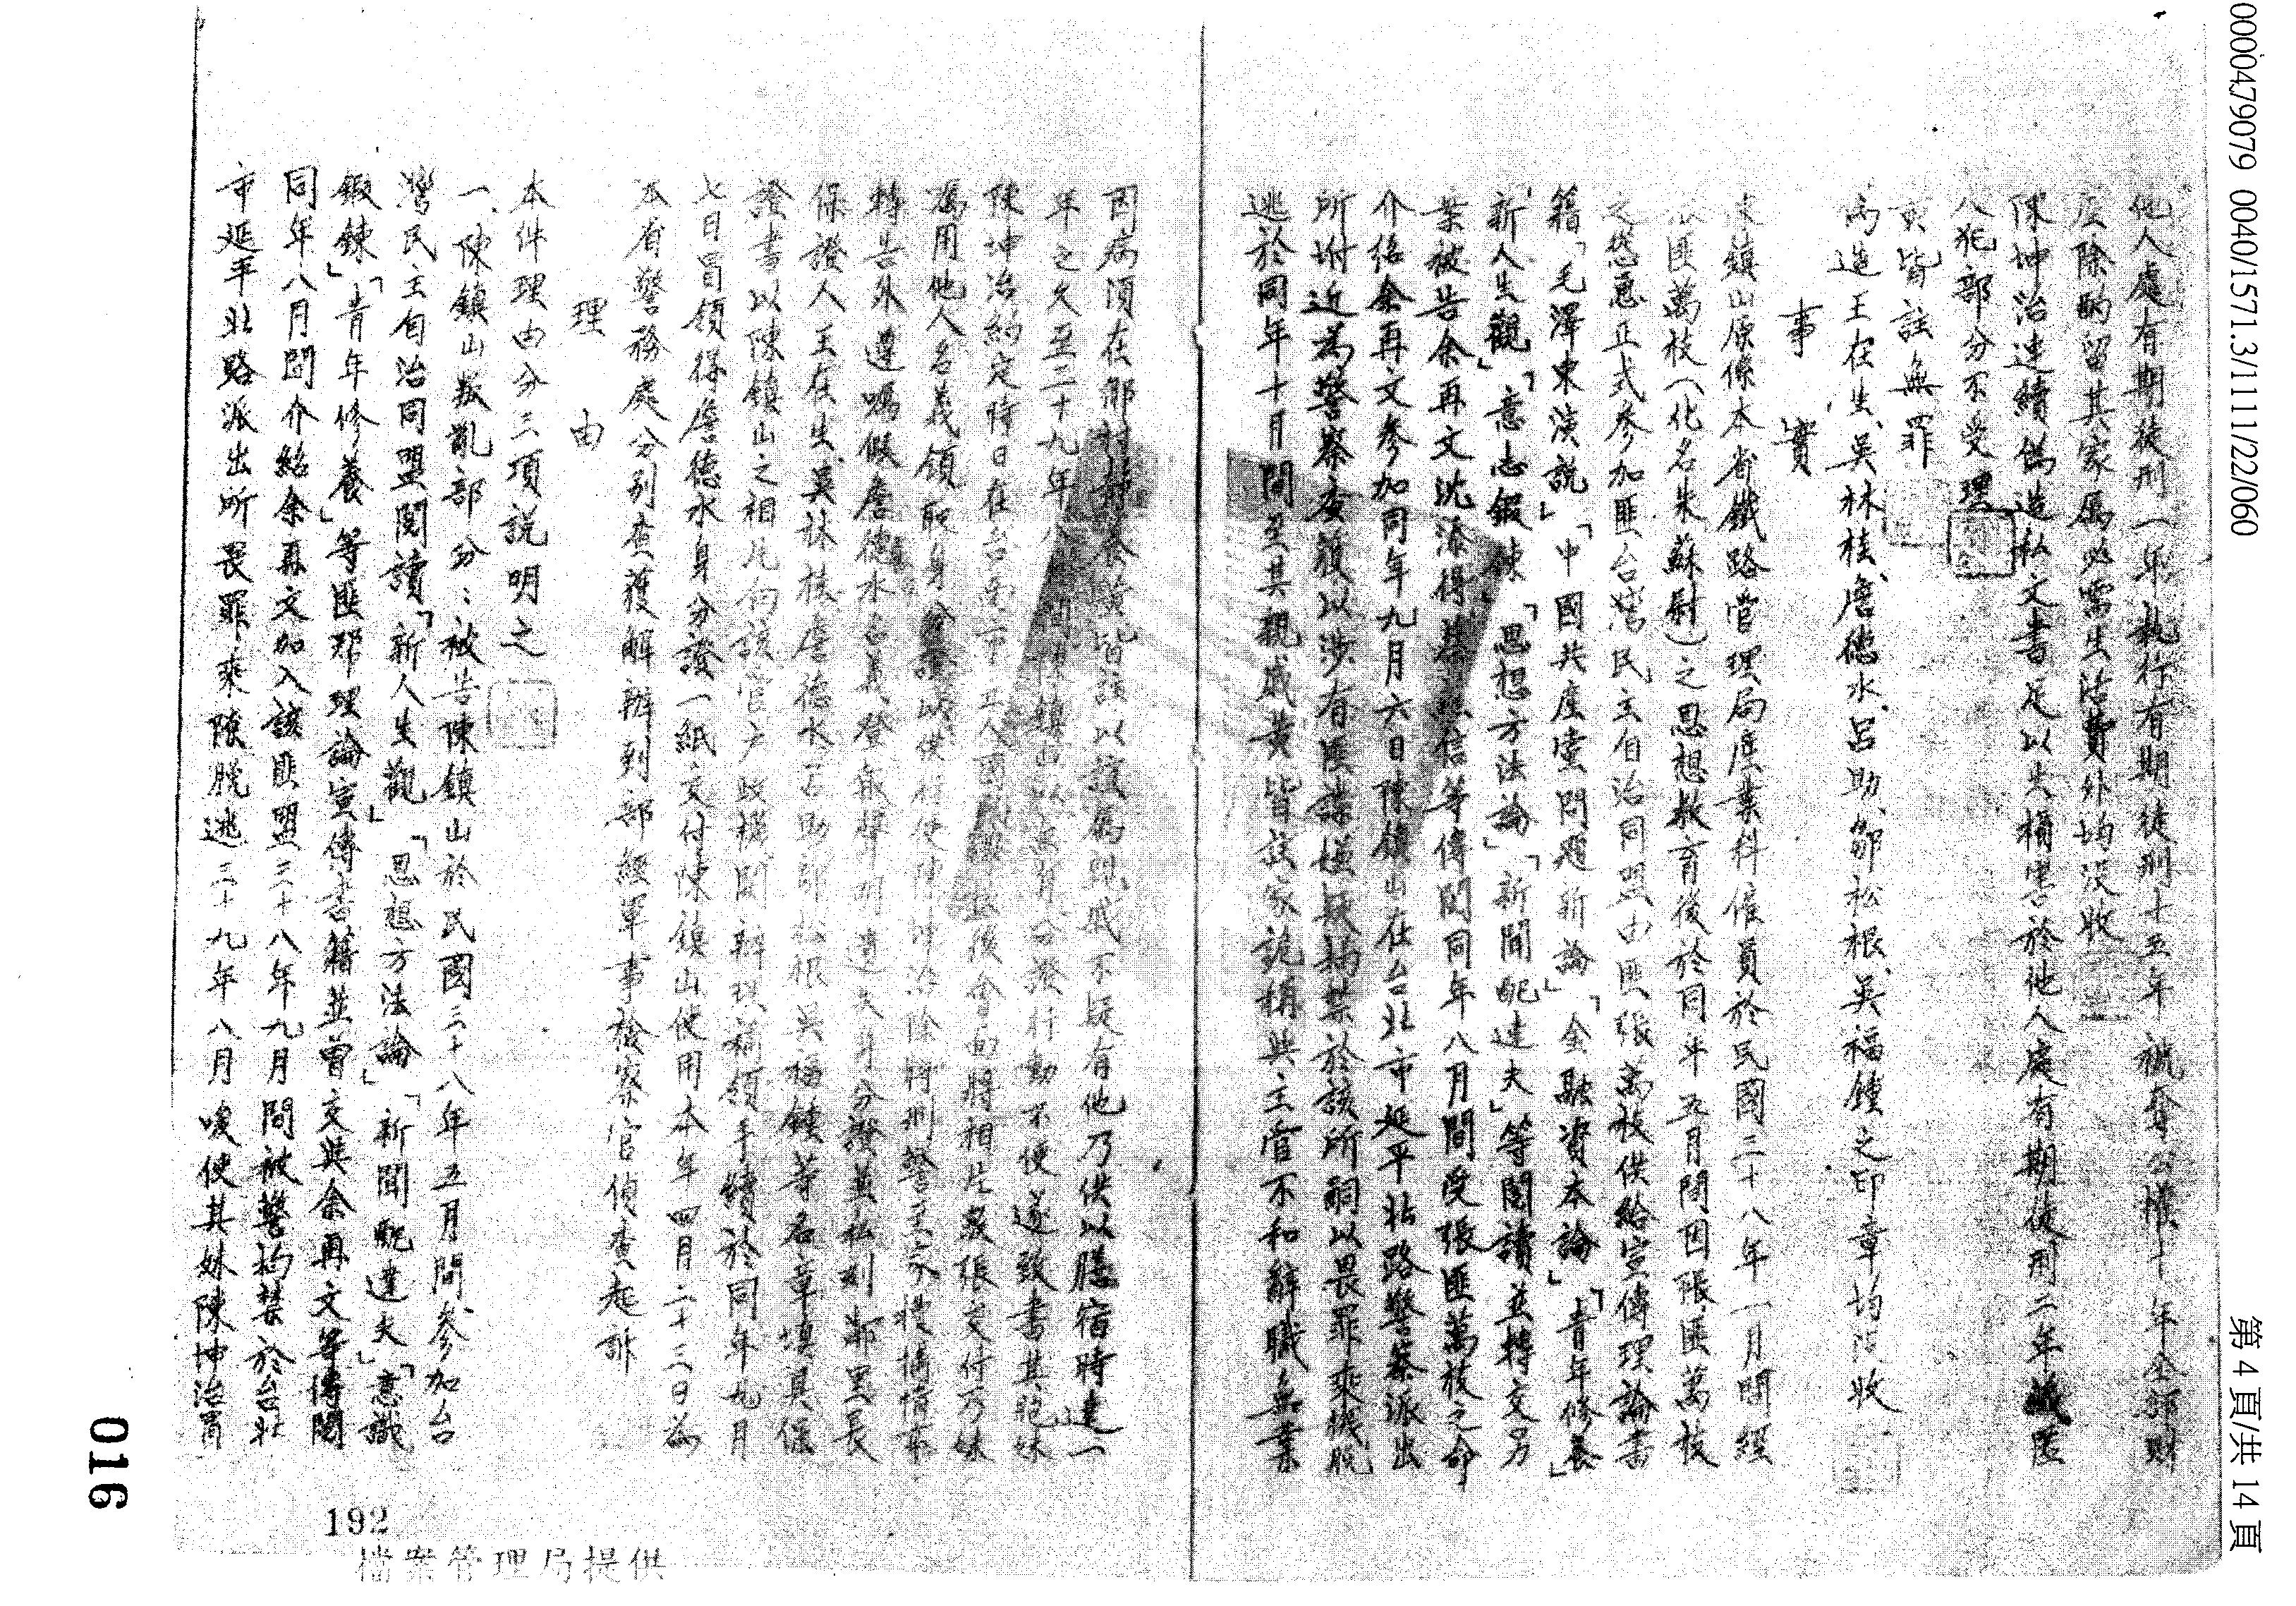 0000479079 0040/1571.3/1111/22/060
第 4 頁/共 14 頁
他人處有期徒刑一年執行有期徒刑十五年褫奪公權十年全部財
產除酌留其家屬必需生活費外均沒收
陳坤治連續偽造私文書足以生損害於他人處有期徒刑二年藏匿
人犯部分不受理
黃皆註無罪
偽造王在生、吳林桂、詹德水、呂助、鄒松根、吳福鐘之印章均沒收
事實
陳鎮山原係本省鐵路管理局產業科僱員於民國三十八年一月間經
匪萬枝(化名朱蘇尉)之思想教育後於同年五月間因張匪萬枝
之慫恿正式參加匪台灣民主自治同盟由匪張萬枝供給宣傳理論書
籍「毛澤東演說」「中國共產黨問題新論」「金融資本論」「青年修養」
新人生觀」「意志鍛鍊」「思想方法論」「新聞配達夫」等閱讀並轉交另
案被告余再文沈添得信等傳閱同年八月間受張匪萬枝之命
介紹余再文參加同年九月六日陳鎮山在台北市延平北路警察派出
所附近為警察查獲以涉有匪諜嫌疑拘禁於該所嗣以畏罪乘機脫
逃於同年十月間至其親戚黃皆註家詭稱與主管不和辭職無業
因病須在鄉村靜養黃皆註以誼屬親戚不疑有他乃供以膳宿時達一
年之久至三十九年八月間陳鎮山以無身分證行動不便遂致書其胞妹
陳坤治約定時日在台南市工人後會面將相片二張交付乃妹
囑用他人名義領取身分證以供行使陳坤治除將刑警至家搜捕情事
轉告外遵囑假詹德水名義登報聲明遺失身分證並私刻鄰里長
保證人王在生、吳林桂、詹德水、呂助、鄒松根、吳福鐘等名章填具保
證書以陳鎮山之相片向該管戶政機關辦理補領手續於同年九月
七日冒領得詹德水身分證一紙交付陳鎮山使用本年四月二十三日為
本省警務處分別查獲解辦到部經軍事檢察官偵查起訴
理由
本件理由分三項說明之
一、陳鎮山叛亂部分:被告陳鎮山於民國三十八年五月間參加台
灣民主自治同盟閱讀「新人生觀」「思想方法論」「新聞配達夫」「意識
鍛鍊」「青年修養」等匪幫理論宣傳書籍並曾交與余再文等傳閱
同年八月間介紹余再文加入該匪盟三十八年九月間被警拘禁於台北
市延平北路派出所畏罪乘隙脫逃三十九年八月唆使其妹陳坤治冒
016
192
檔案管理局提供